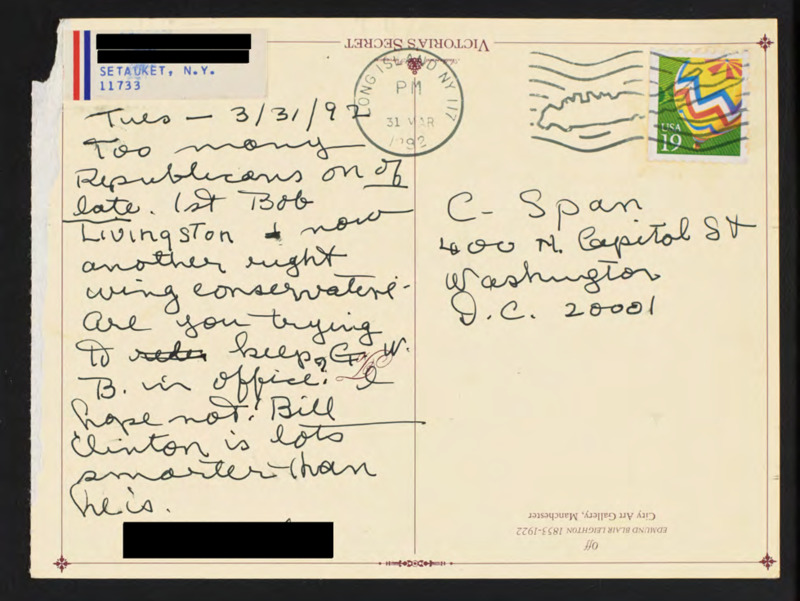 SETAUKET, N.Y.
11733
VICTORIA'S SECRET
LONG ISLAND NY 117
PM
31 MAR
1992
USA
19
Tues - 3/31/92
Too many
Republicans on of
late. 1st Bob
Livingston & now
another right
wing conservative -
Are you trying
to keep G. W.
B. in office? I
hope not! Bill
Clinton is lots
smarter than
he is.
C- Span
400 N. Capitol St
Washington
D.C. 20001
Off
EDMUND BLAIR LEIGHTON 1853-1922
City Art Gallery, Manchester